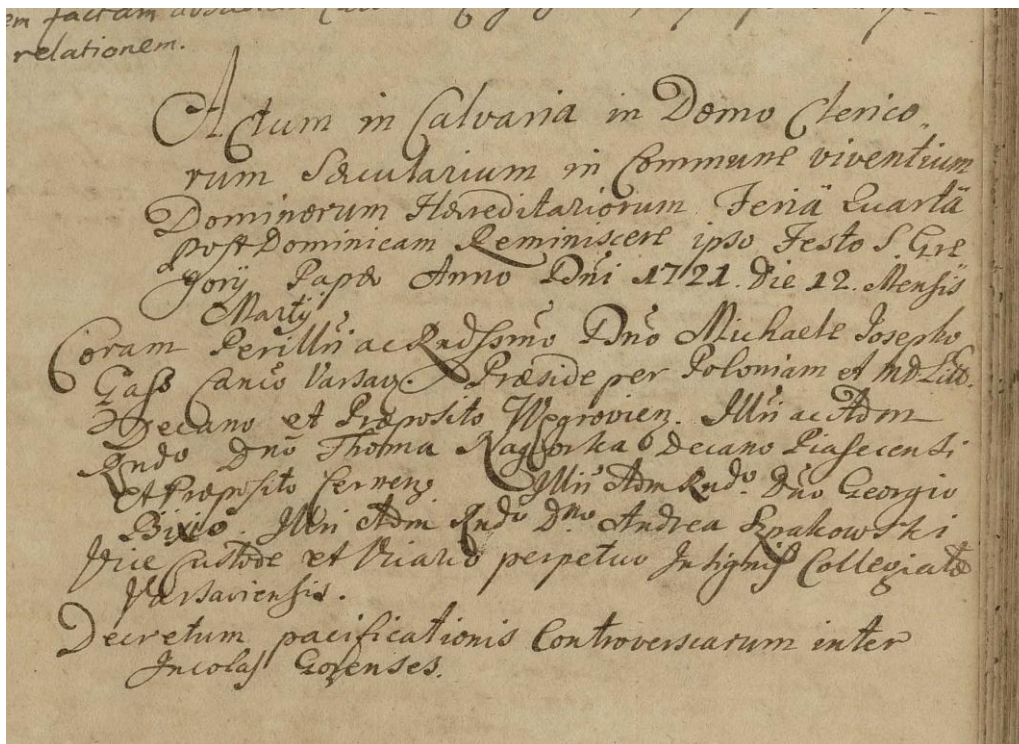 relationem.
Actum in Calvaria in Domo Clerico-
rum Sæcularium in Commune viventium
Dominorum Hæreditariorum Feriâ Quartâ
post Dominicam Reminiscere ipso Festo S. Gre
gorij Papæ Anno Dñi 1721. Die 12. Mensis
Martij
Coram Perillri ac Rndssmo Dño Michaele Josepho
Gass Canco Varsav. Præside per Poloniam et M.D. Litt.
Decano et Præposito Wegrovien. Illri ac Adm
Rndo Dño Thoma Nagorka Decano Piasecensi
et Præposito Illri Adm Rndo. Dño Georgio
Illri Adm Rndo Dno Andrea Szpakowski
Vice Custode et Vicario perpetuo Insignis Collegiatæ
Varsaviensis.
Decretum pacificationis Controversiarum inter
Incolas Gorenses.